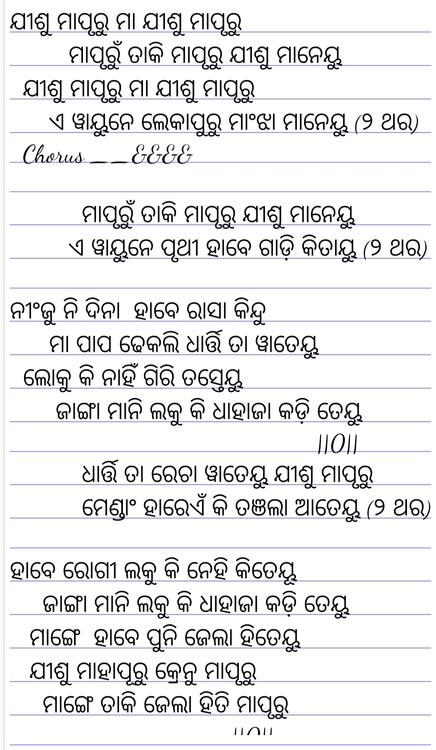 ଯୀଶୁ ମାପୃରୁ ମା ଯୀଶୁ ମାପୃରୁ
ମାପୃରୁଁ ତାକି ମାପୃରୁ ଯୀଶୁ ମାନେୟୁ
ଯୀଶୁ ମାପୃରୁ ମା ଯୀଶୁ ମାପୃରୁ
ଏ ୱାୟୁନେ ଲେକାପୁରୁ ମାଂଝା ମାନେୟୁ (୨ ଥର)
Chorus __&&&&
ମାପୃରୁଁ ତାକି ମାପୃରୁ ଯୀଶୁ ମାନେୟୁ
ଏ ୱାୟୁନେ ପୃଥୀ ହାବେ ଗାଡ଼ି କିତାୟୁ (୨ ଥର)
ନୀଂଜୁ ନି ଦିନା ହାବେ ରାସା କିନ୍ଦୁ
ମା ପାପ ଢେକଲି ଧାର୍ତ୍ତି ତା ୱାତେୟୁ
ଲୋକୁ କି ନାହିଁ ଗିରି ତସ୍ତେୟୁ
ଜାଙ୍ଗା ମାନି ଲକୁ କି ଧାହାଜା କଡ଼ି ତେୟୁ
||0||
ଧାର୍ତ୍ତି ତା ରେଚା ୱାତେୟୁ ଯୀଶୁ ମାପୃରୁ
ମେଣ୍ଡାଂ ହାରେଏଁ କି ତଞଲା ଆତେୟୁ (୨ ଥର)
ହାବେ ରୋଗୀ ଲକୁ କି ନେହି କିତେୟୁ
ଜାଙ୍ଗା ମାନି ଲକୁ କି ଧାହାଜା କଡ଼ି ତେୟୁ
ମାଙ୍ଗେ ହାବେ ପୁନି ଜେଲା ହିତେୟୁ
ଯୀଶୁ ମାହାପୂରୁ କ୍ରେନୁ ମାପୃରୁ
ମାଙ୍ଗେ ତାକି ଜେଲା ହିତି ମାପୃରୁ
||0||